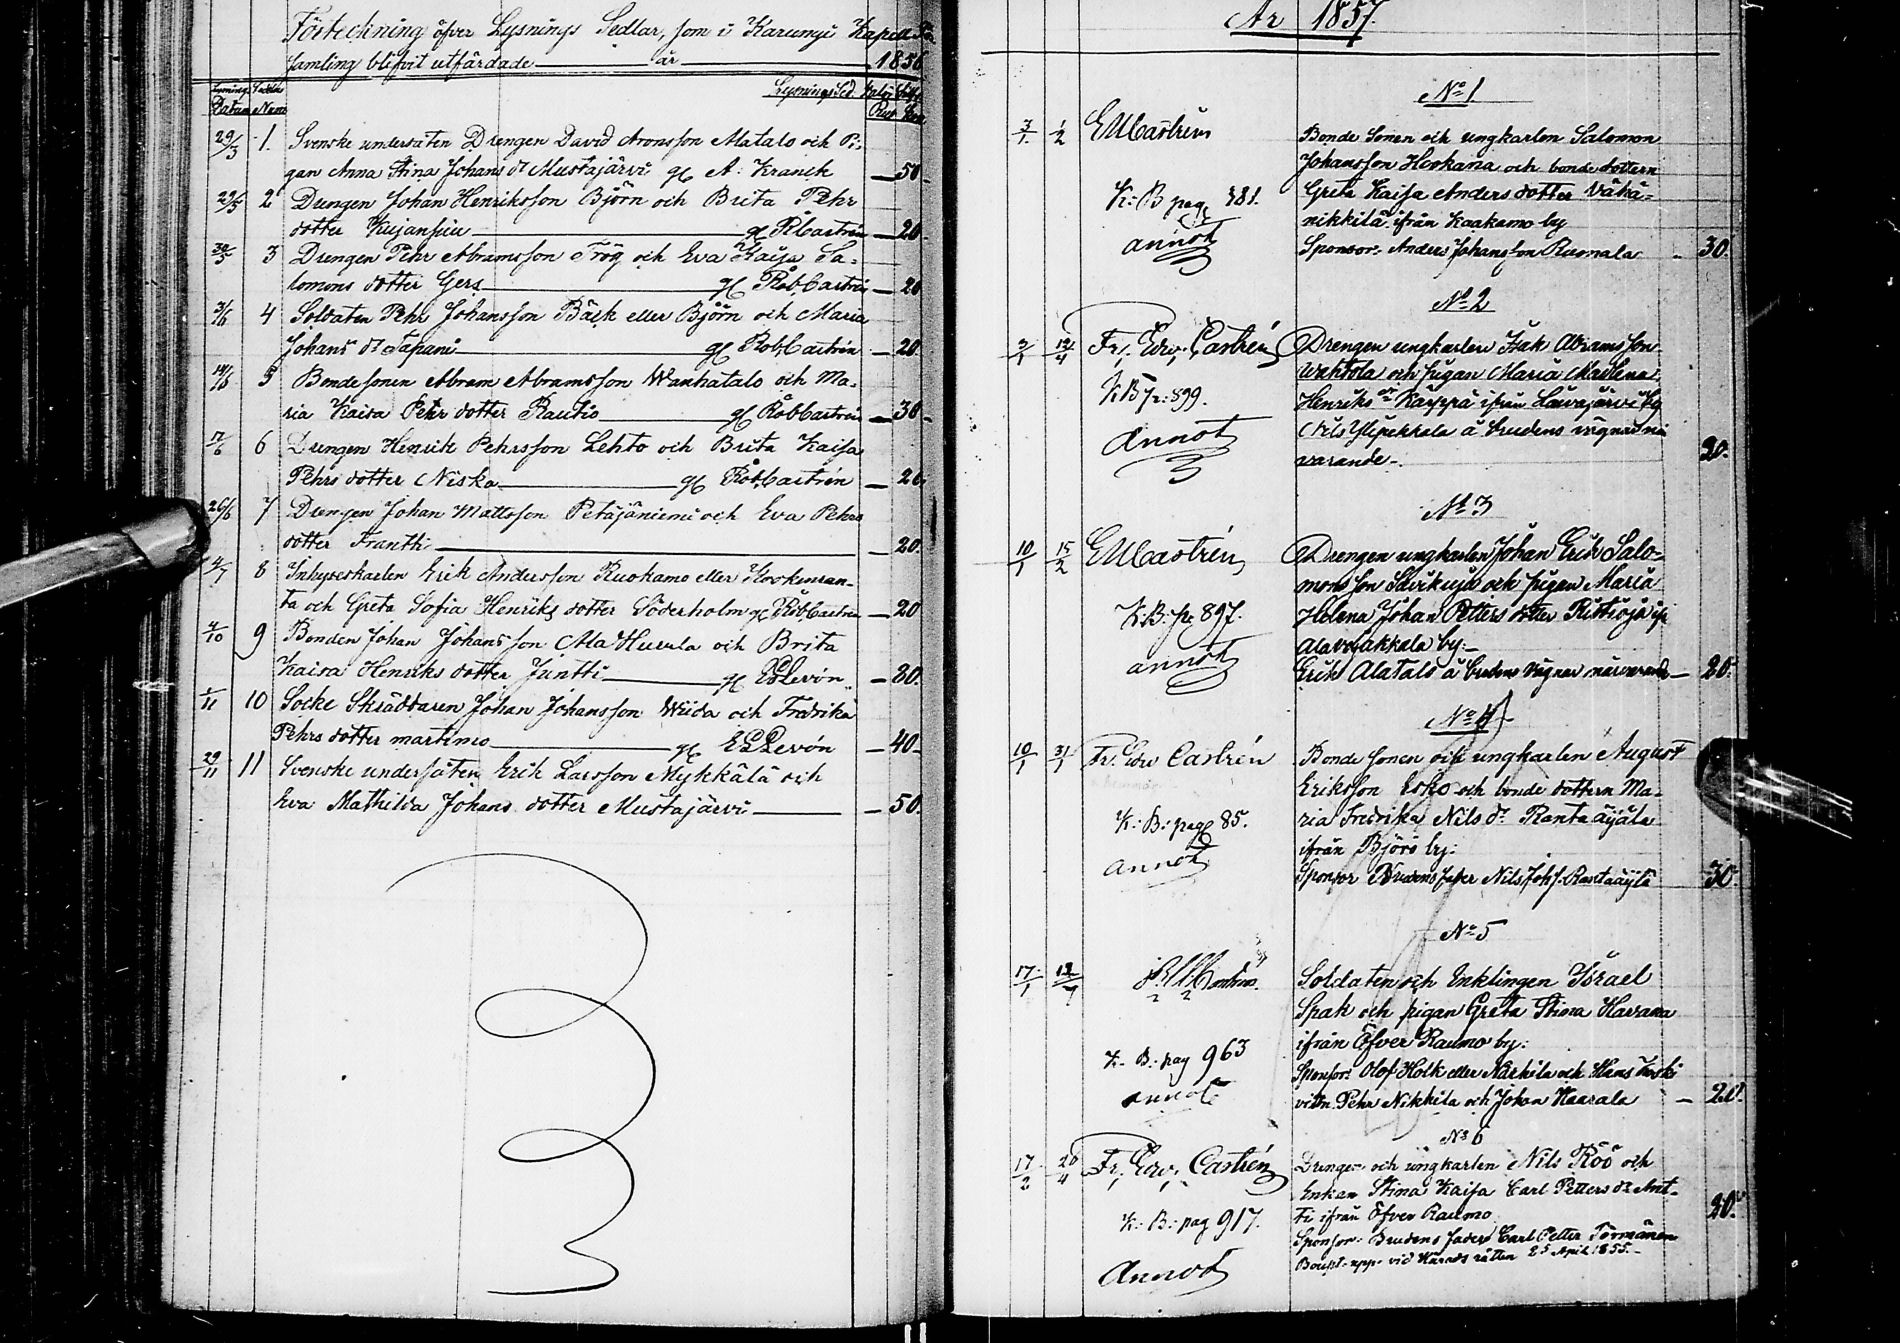 Förteckning öfver Lysnings Sedlar, som i Karungi Kapell För
samling blifvit utfärdade år 1856
Lysnings Sedlar
Datum Num
Lysnings Sed.
29/3 1. Svenske undersåten Drengen David Aronsson Alatalo och Pi-
gan Anna Stina Johans dr Mustajärvi gl A. Kranck — 50
29/5 2 Drengen Johan Henriksson Björn och Brita Pehr
dotter Kujanpiiu gl RCastrén — 20
30/5 3 Drengen Pehr Abramsson Frög och Eva Kaisa Sa-
lomons dotter Gers gl RobCastrén — 20
3/6 4 Soldaten Pehr Johansson Bäck eller Björn och Maria
Johans dr Tapani gl RobCastrén — 20
14/6 5 Bondesonen Abram Abramsson Wanhatalo och Ma-
ria Kaisa Pehr dotter Rautio gl RobCastrén — 30
17/6 6 Drengen Henrik Pehrsson Lehto och Brita Kaisa
Pehrs dotter Niska gl RobCastrén — 20
26/6 7 Drengen Johan Mattsson Petäjäniemi och Eva Pehrs
dotter Frantti — 20.
4/7 8 Inhyseskarlen Erik Andersson Ruokamo eller Koskenran-
ta och Greta Sofia Henriks dotter Söderholm gl RobCastrén — 20
4/10 9 Bonden Johan Johansson Ala Huvila och Brita
Kaisa Henriks dotter Juntti gl ELevón — 30.
1/11 10 Socke Skräddaren Johan Johansson Wiida och Fredrika
Pehrs dotter martimo gl ELevón — 40
29/11 11 Svenske undersåten Erik Larsson Mykkälä och
Eva Mathilda Johans dotter Mustajärvi — 50.
År 1857.
No 1
3/1 1/2 EMCastrén
Bonde Sonen och ungkarlen Salomon
Johansson Hookana och bonde dottern
K: B pag 381.
Greta Kaisa Anders dotter Vähä-
nikkilä ifrån Kaakamo by
annot
Sponsor: Anders Johansson Ruonala 30.
No 2
3/1 12/4 Fr. Edv. Castrén
Drengen ungkarlen Isak Abramsson
Wahtola och pigan Maria Madlena
K B p: 899.
Henriks dr Karppa ifrån Lavajärvi by
annot
Nils Ylipekkala å brudens vägnar när
varande. 20.
No 3
10/1 15/2 EMCastrén
Drengen ungkarlen Johan Erik Salo-
monsson Savikuja och pigan Maria
K: B: p. 897.
Helena Johan Petters dotter Ristioja ifr
annot
Alavojakkala by:
Erik Alatalo å brudens vägnar närvarande — 20.
No 4
10/1 31/1 Fr. Edv Castrén
Bonde Sonen och ungkarlen August
Eriksson Esko och bonde dottern Ma-
K: B: pag 85.
ria Fredrika Nils dr Rantaäijälä
ifrån Björö by:
annot
Sponsor Brudens fader Nils Johs. Rantaäijlä 30
No 5
17/1 12/7
Soldaten och Enklingen Israel
Spak och pigan Greta Stina Havana
ifrån Öfver Raumo by:
K. B: pag 963
Sponsor: Olof Holk eller Närkilä och Hans Koski
annot
vittn. Pehr Nikkila och Johan Haarala — 20.
No 6
17/2 20/4 Fr. Edv. Castrén
Drengen och ungkarlen Nils Röö och
Enkan Stina Kaisa Carl Petters dr Ant-
K: B: pag 917.
ti ifrån Öfver Raumo 20.
Sponsor: Brudens fader Carl Petter Törmänen
annot
Boupt. upp. vid Härads rätten 25 April 1855.